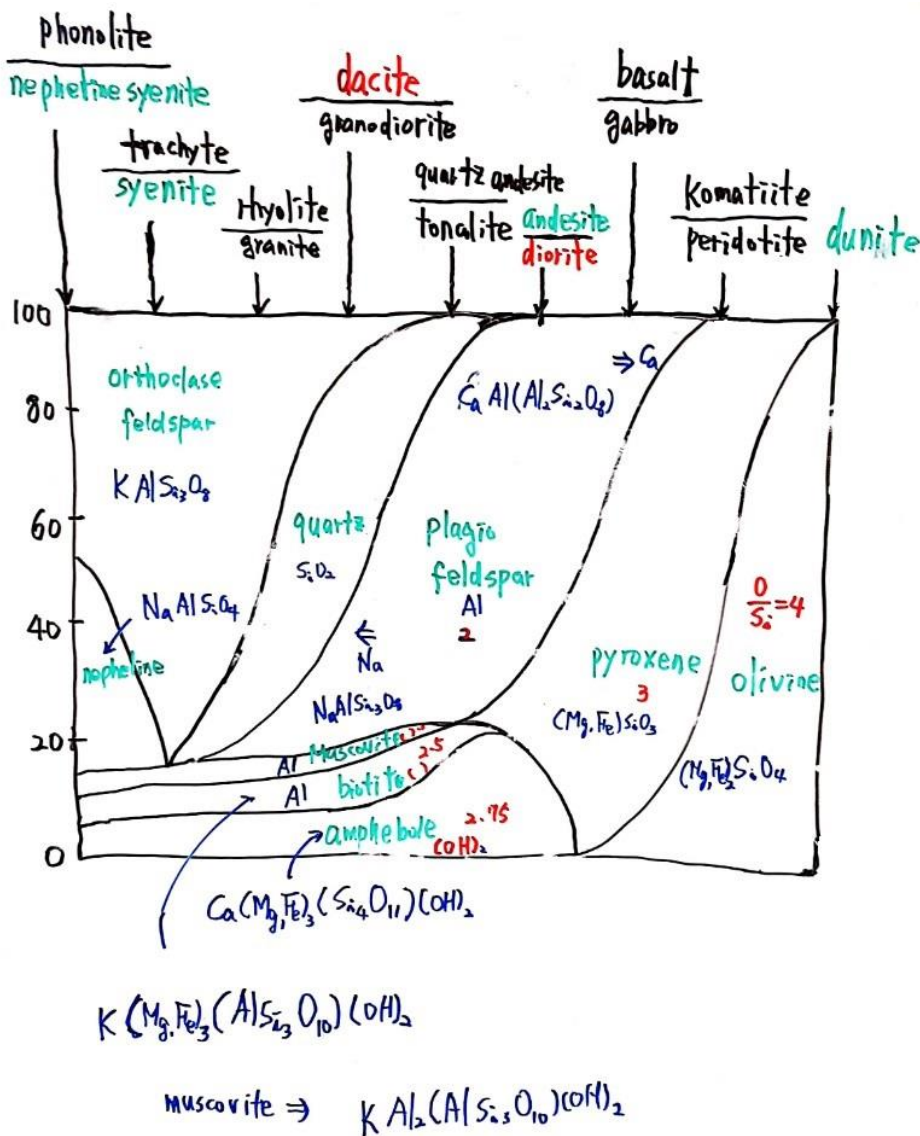 phonolite
nepheline syenite
trachyte
syenite
Rhyolite
granite
dacite
granodiorite
quartz andesite
tonalite
andesite
diorite
basalt
gabbro
Komatiite
peridotite
dunite
100
80
60
40
20
0
orthoclase
feldspar
KAlSi₃O₈
NaAlSiO₄
nepheline
quartz
SiO₂
⇒ Ca
CaAl(Al₂Si₂O₈)
plagio
feldspar
Al
2
⇐
Na
NaAlSi₃O₈
pyroxene
3
(Mg,Fe)SiO₃
O/Si=4
olivine
(Mg,Fe)₂SiO₄
Al Muscovite
Al biotite () 2.5
amphebole 2.75
(OH)₂
Ca(Mg,Fe)₃(Si₄O₁₁)(OH)₂
K(Mg,Fe)₃(AlSi₃O₁₀)(OH)₂
muscovite ⇒ KAl₂(AlSi₃O₁₀)(OH)₂